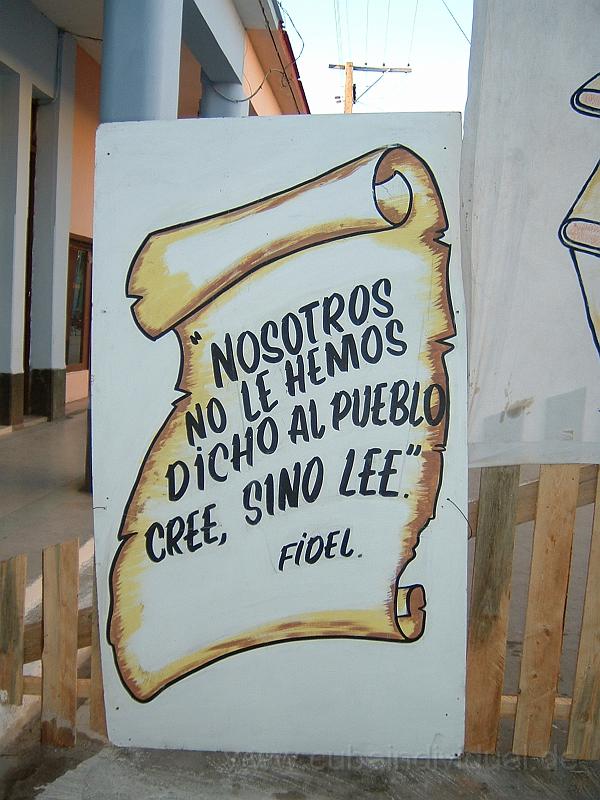 "NOSOTROS
NO LE HEMOS
DiCHO AL PUEBLO
CREE, SINO LEE."
FiDEL.
www.cubaindividual.de